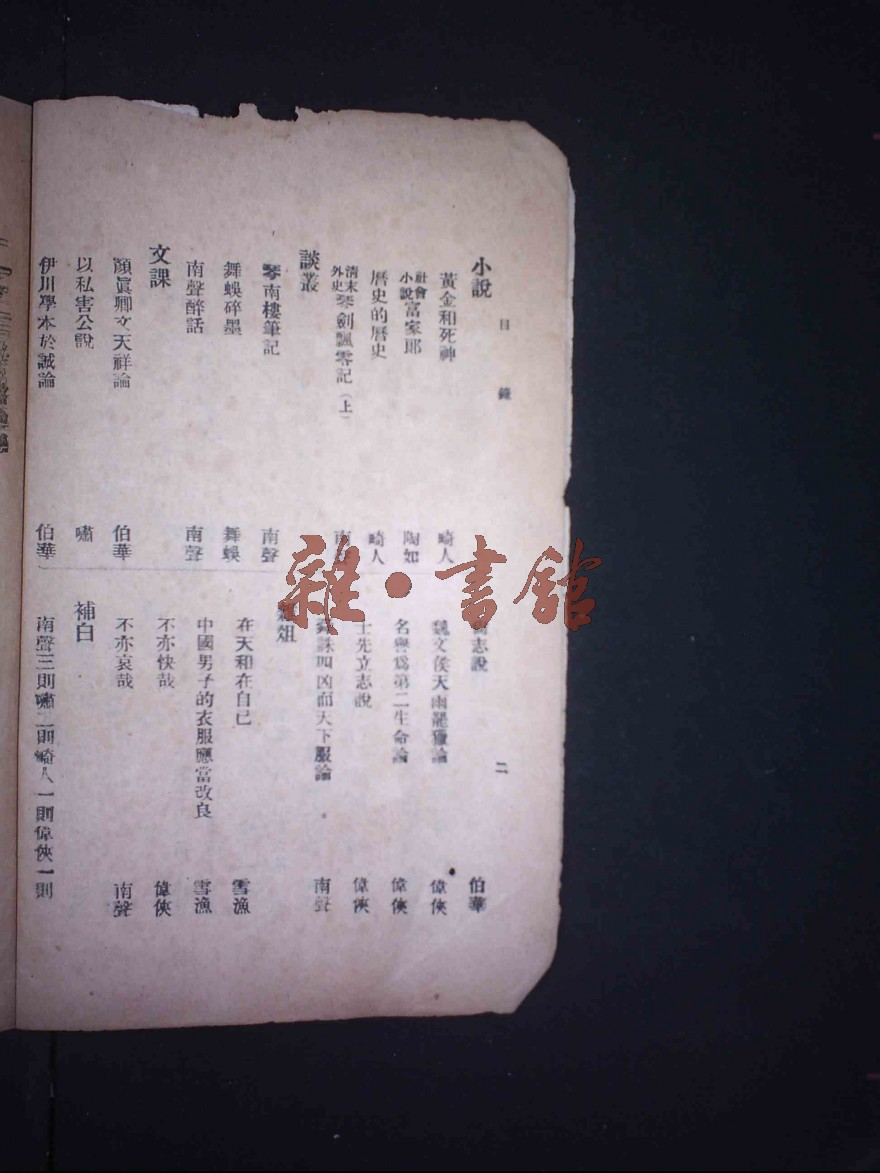 目錄 二
小說
黃金和死神 畸人
社會小說 富家郎 陶如
曆史的曆史 畸人
清末外史 琴劍飄零記(上) 南
談叢
琴南樓筆記 南聲
舞蜈碎墨 舞蜈
南聲醉話 南聲
文課
顏眞卿文天祥論 伯華
以私害公說 嘯
伊川學本於誠論 伯華
志說 伯華
魏文侯天雨罷獵論 偉俠
名譽爲第二生命論 偉俠
士先立志說 偉俠
誅四凶而天下服論 南聲
俎
在天和在自己 雪漁
中國男子的衣服應當改良 雪漁
不亦快哉 偉俠
不亦哀哉 南聲
補白
南聲三則嘯二則畸人一則偉俠一則
雜·書館